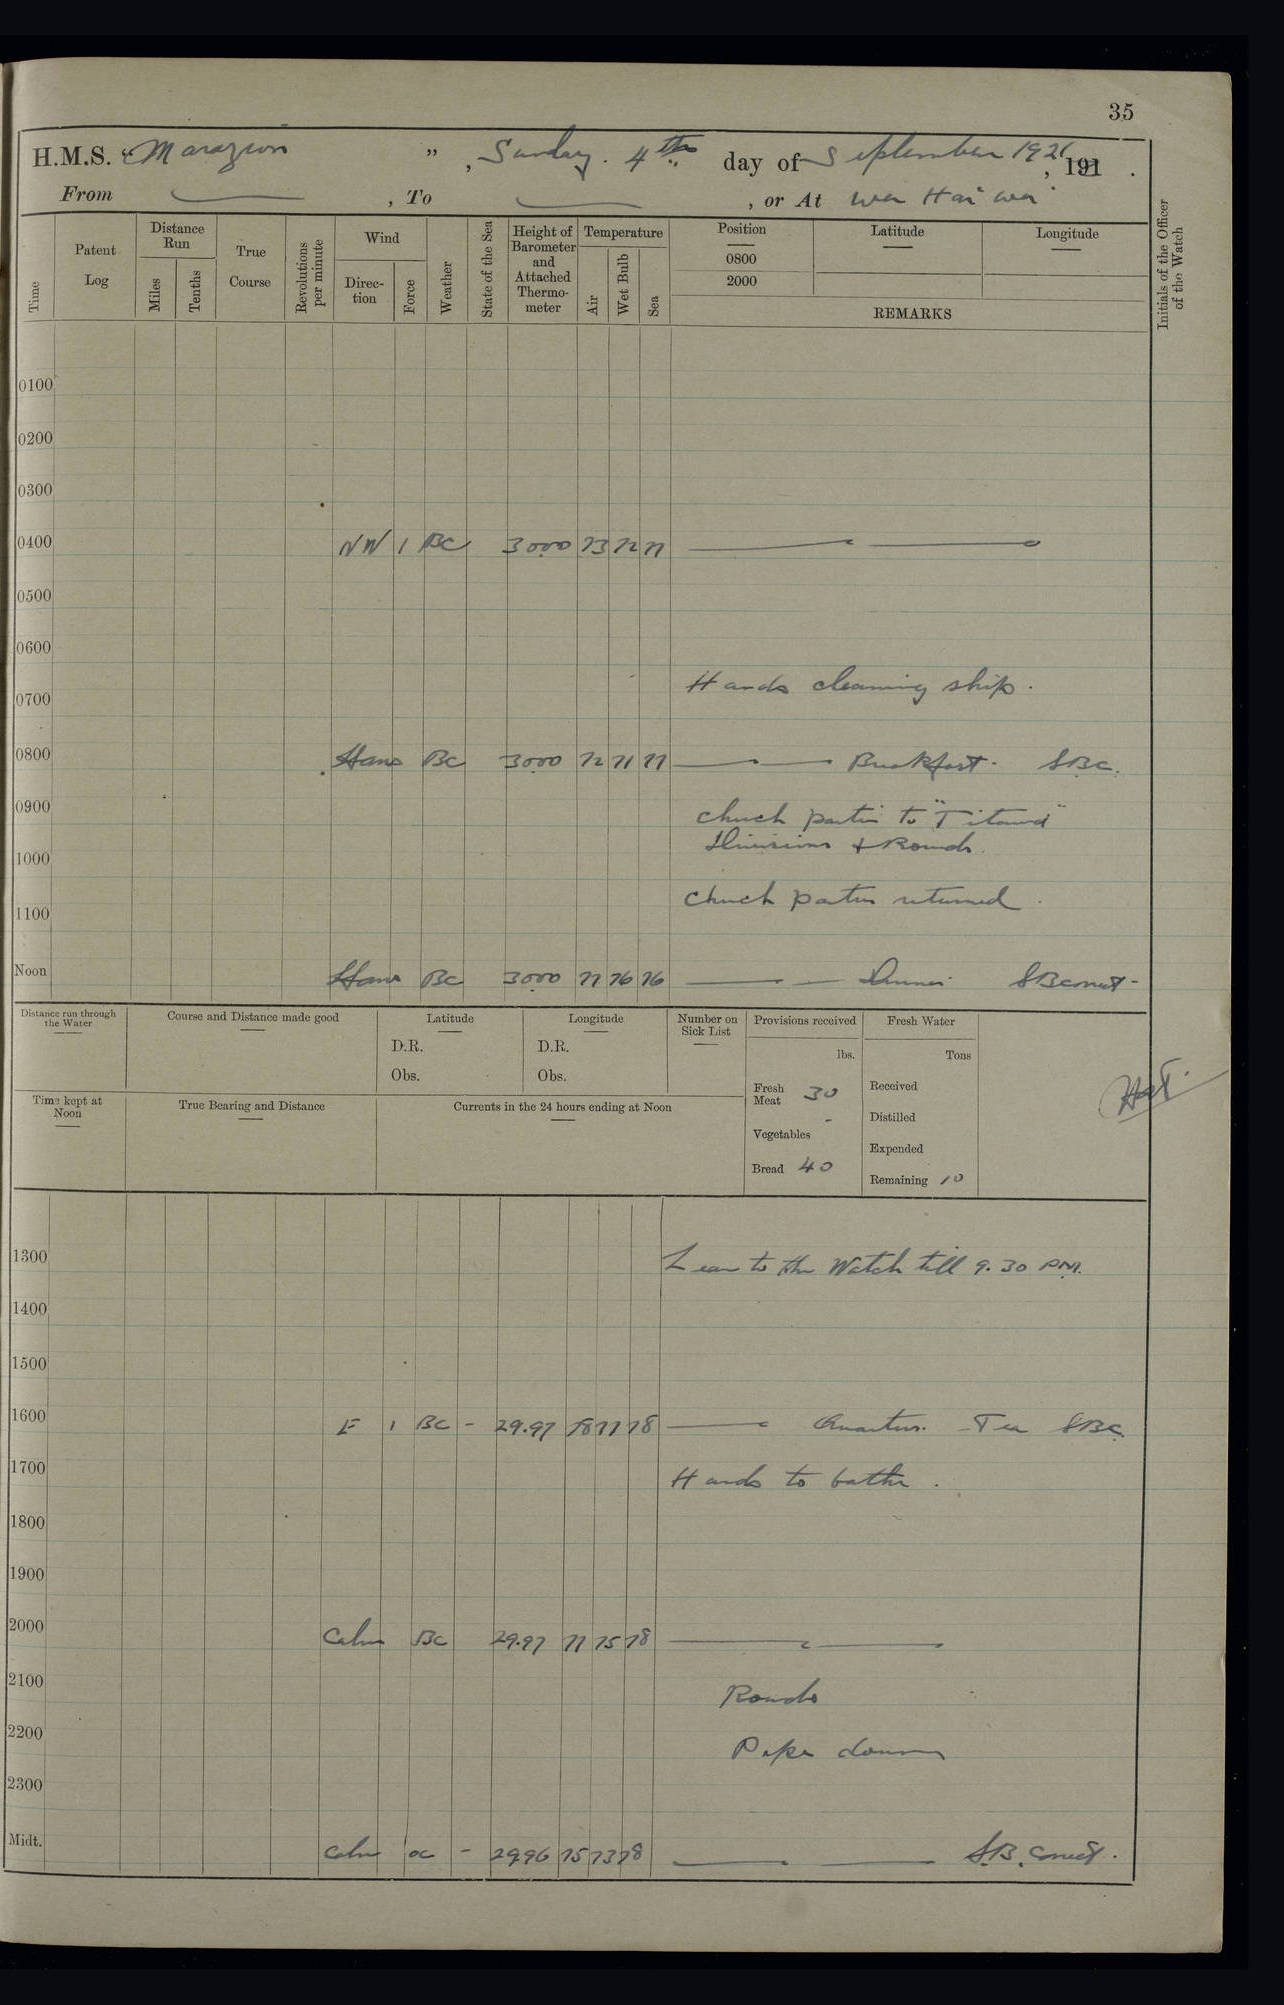 35
H.M.S. "Marazion", Sunday. 4th day of September 1921, 191.
From ——, To ——, or At Wei Hai Wei
Time
Patent Log
Distance Run
Miles
Tenths
True Course
Revolutions per minute
Wind
Direction
Force
Weather
State of the Sea
Height of Barometer and Attached Thermometer
Temperature
Air
Wet Bulb
Sea
Position
0800
2000
Latitude
Longitude
REMARKS
Initials of the Officer of the Watch
0100
0200
0300
0400 NW 1 BC 30.00 73 72 77
0500
0600
Hands cleaning ship.
0700
0800 BC 30.00 72 71 77 Breakfast. SBC.
0900
Church parties to "Titania"
Divisions & Rounds.
1000
Church parties returned.
1100
Noon BC 30.00 77 76 76 Dinner
Distance run through the Water
Course and Distance made good
Latitude
D.R.
Obs.
Longitude
D.R.
Obs.
Number on Sick List
Provisions received
lbs.
Fresh Meat 30
Vegetables -
Bread 40
Fresh Water
Tons
Received
Distilled
Expended
Remaining 10
Time kept at Noon
True Bearing and Distance
Currents in the 24 hours ending at Noon
1300 Leave to the Watch till 9.30 PM.
1400
1500
1600 E 1 BC - 29.97 78 77 78 Quarters. Tea SBC.
1700 Hands to bathe.
1800
1900
2000 Calm BC 29.97 77 75 78
2100 Rounds
2200 Pipe down
2300
Midt. Calm - 29.96 75 73 78